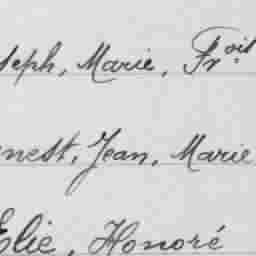 seph, Marie, Frois
nest, Jean, Marie
Elie, Honoré